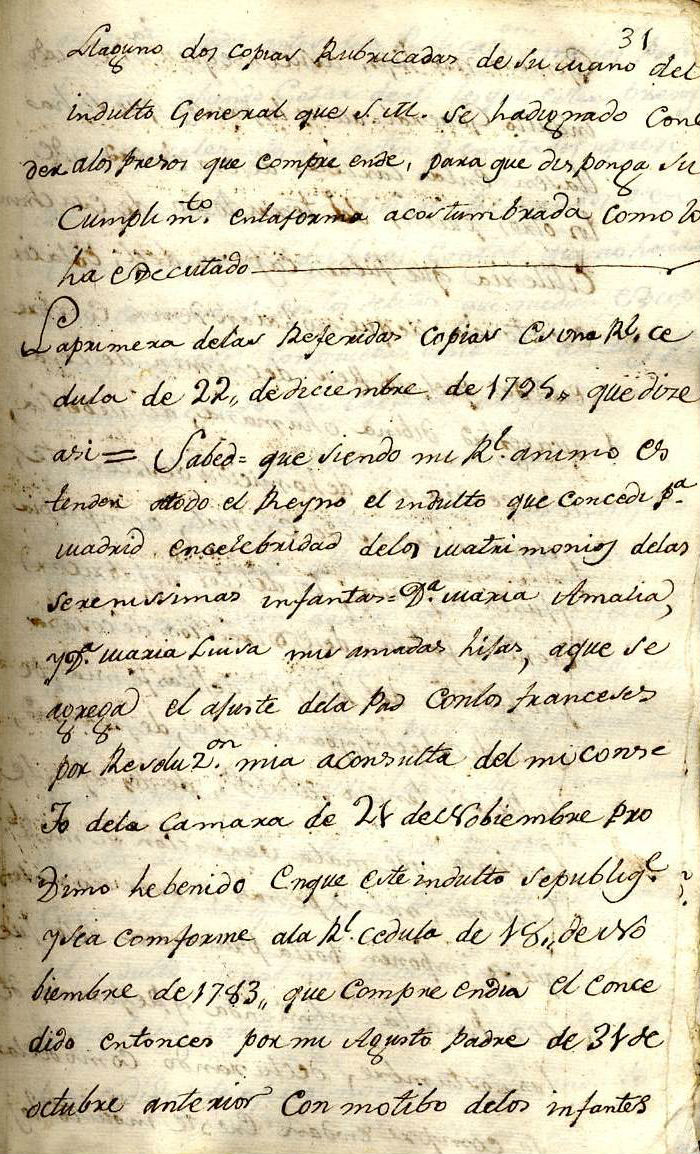 31
Llaguno dos copias Rubricadas de su mano del
indulto General que S.M. se hadignado Conce
der alos presos que compre ende, para que disponga su
Cumplim.to enlaforma acostumbrada como lo
ha executado
Laprimera delas Referidas copias Esuna Rl. ce
dula de 22,, dediciembre de 1795,, quedize
asi = Sabed = que siendo mi Rl. animo es
tender atodo el Reyno el indulto que concedi pa.
madrid encelebridad delos matrimonios delas
serenissimas infantas = Da. maria Amalia,
y Da. maria Luisa mis amadas hijas, aque se
agrega el ajuste dela Paz Conlos franceses
por Resoluzon. mia aconsulta del mi conse
Jo dela camara de 21 deNobiembre pro
Ximo hebenido Enque este indulto sepublique
ysea comforme ala Rl. cedula de 18,, de No
biembre de 1783,, que compre endia el conce
dido entonces por mi Agusto padre de 31 de
octubre anterior Con motibo delos infantes